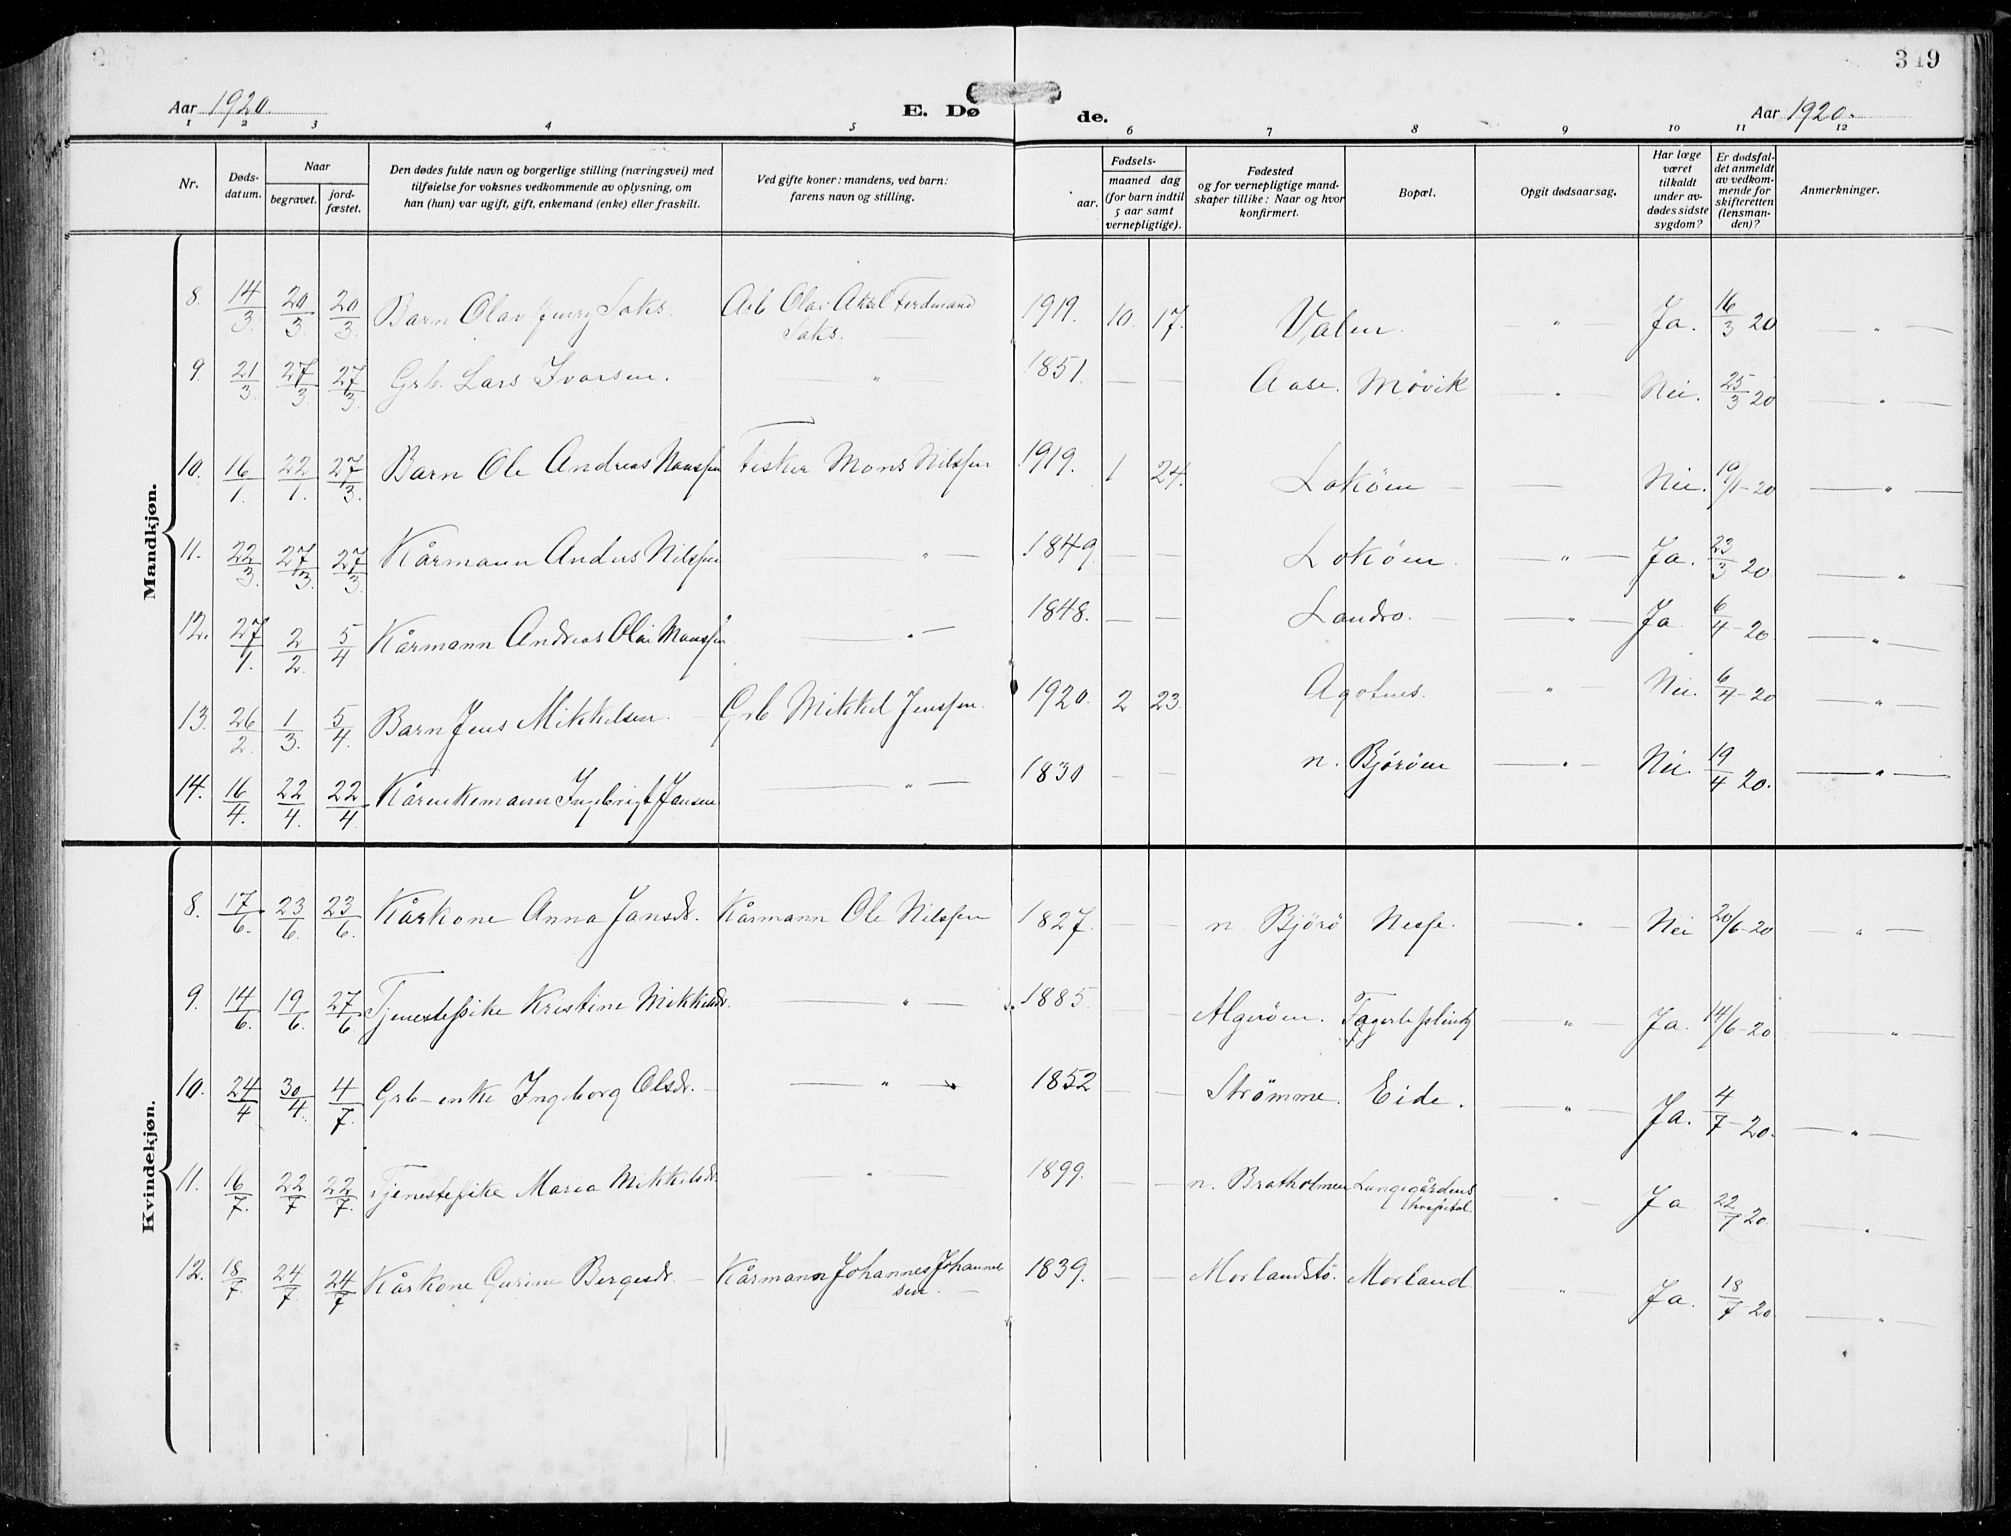 319
Aar 1920.
E. Dø de.
Aar 1920.
1 2 3 4 5 6 7 8 9 10 11 12
Nr.
Døds-
datum.
Naar
begravet.
jord-
fæstet.
Den dødes fulde navn og borgerlige stilling (næringsvei) med
tilføielse for voksnes vedkommende av oplysning, om
han (hun) var ugift, gift, enkemand (enke) eller fraskilt.
Ved gifte koner: mandens, ved barn:
farens navn og stilling.
Fødsels-
aar.
maaned dag
(for barn indtil
5 aar samt
vernepligtige).
Fødested
og for vernepligtige mand-
skaper tillike: Naar og hvor
konfirmert.
Bopæl.
Opgit dødsaarsag.
Har læge
været
tilkaldt
under av-
dødes sidste
sygdom?
Er dødsfal-
det anmeldt
av vedkom-
mende for
skifteretten
(lensman-
den)?
Anmerkninger.
Mandkjøn.
8. 14/3. 20/3. 20/3. Barn Olav Henry Saks. Arb Olai Aksel Ferdinand 1919. 10. 17. Valen. " Ja. 16/3 20 "
Saks.
9. 21/3. 27/3. 27/3. Grb. Lars Ivarsen. " 1851. Aase. Møvik " Nei. 25/3 20 "
10. 16/1. 22/1. 27/3. Barn Ole Andreas Monssen Fisker Mons Nilssen 1919. 1 24. Lokøen Nei. 19/1-20 "
11. 22/3. 27/3. 27/3. Kårmann Anders Nilssen " 1849. Lokøen. " Ja. 23/3 20. "
12. 27/1. 2/2. 5/4 Kårmann Andreas Olai Monssen " 1848. Landro. " Ja 6/4-20 "
13. 26/2. 1/3. 5/4. Barn Jens Mikkelsen. Grb Mikkel Jenssen. 1920. 2 23. Agotnes. " Nei. 6/4-20 "
14. 16/4. 22/4. 22/4. Kårenkemann Ingebrigt Jansen " 1830 n. Bjørøen " Nei. 19/4 20. "
Kvindekjøn.
8. 17/6. 23/6. 23/6. Kårkone Anna Jansdr. Kårmann Ole Nilssen 1827. n. Bjørø Nesse. " Nei 20/6-20 "
9. 14/6. 19/6. 27/6 Tjenestepike Kristine Mikkelsdr. " 1885. Algerøen. " Ja. 14/6-20 "
10. 24/4 30/4. 4/7 Grb-enke Ingeborg Olsdr. " 1852 Strømme. Eide. " Ja. 4/7-20. "
11. 16/7. 22/7 22/7. Tjenestepike Maria Mikkelsdr. " 1899. n. Bratholmen Lungegårdens " Ja 22/7 20. "
hospital.
12. 18/7. 24/7. 24/7 Kårkone Gurine Bergesdr. Kårmann Johannes Johannes 1839. Morlandstø. Morland " Ja. 18/7-20. "
sen.